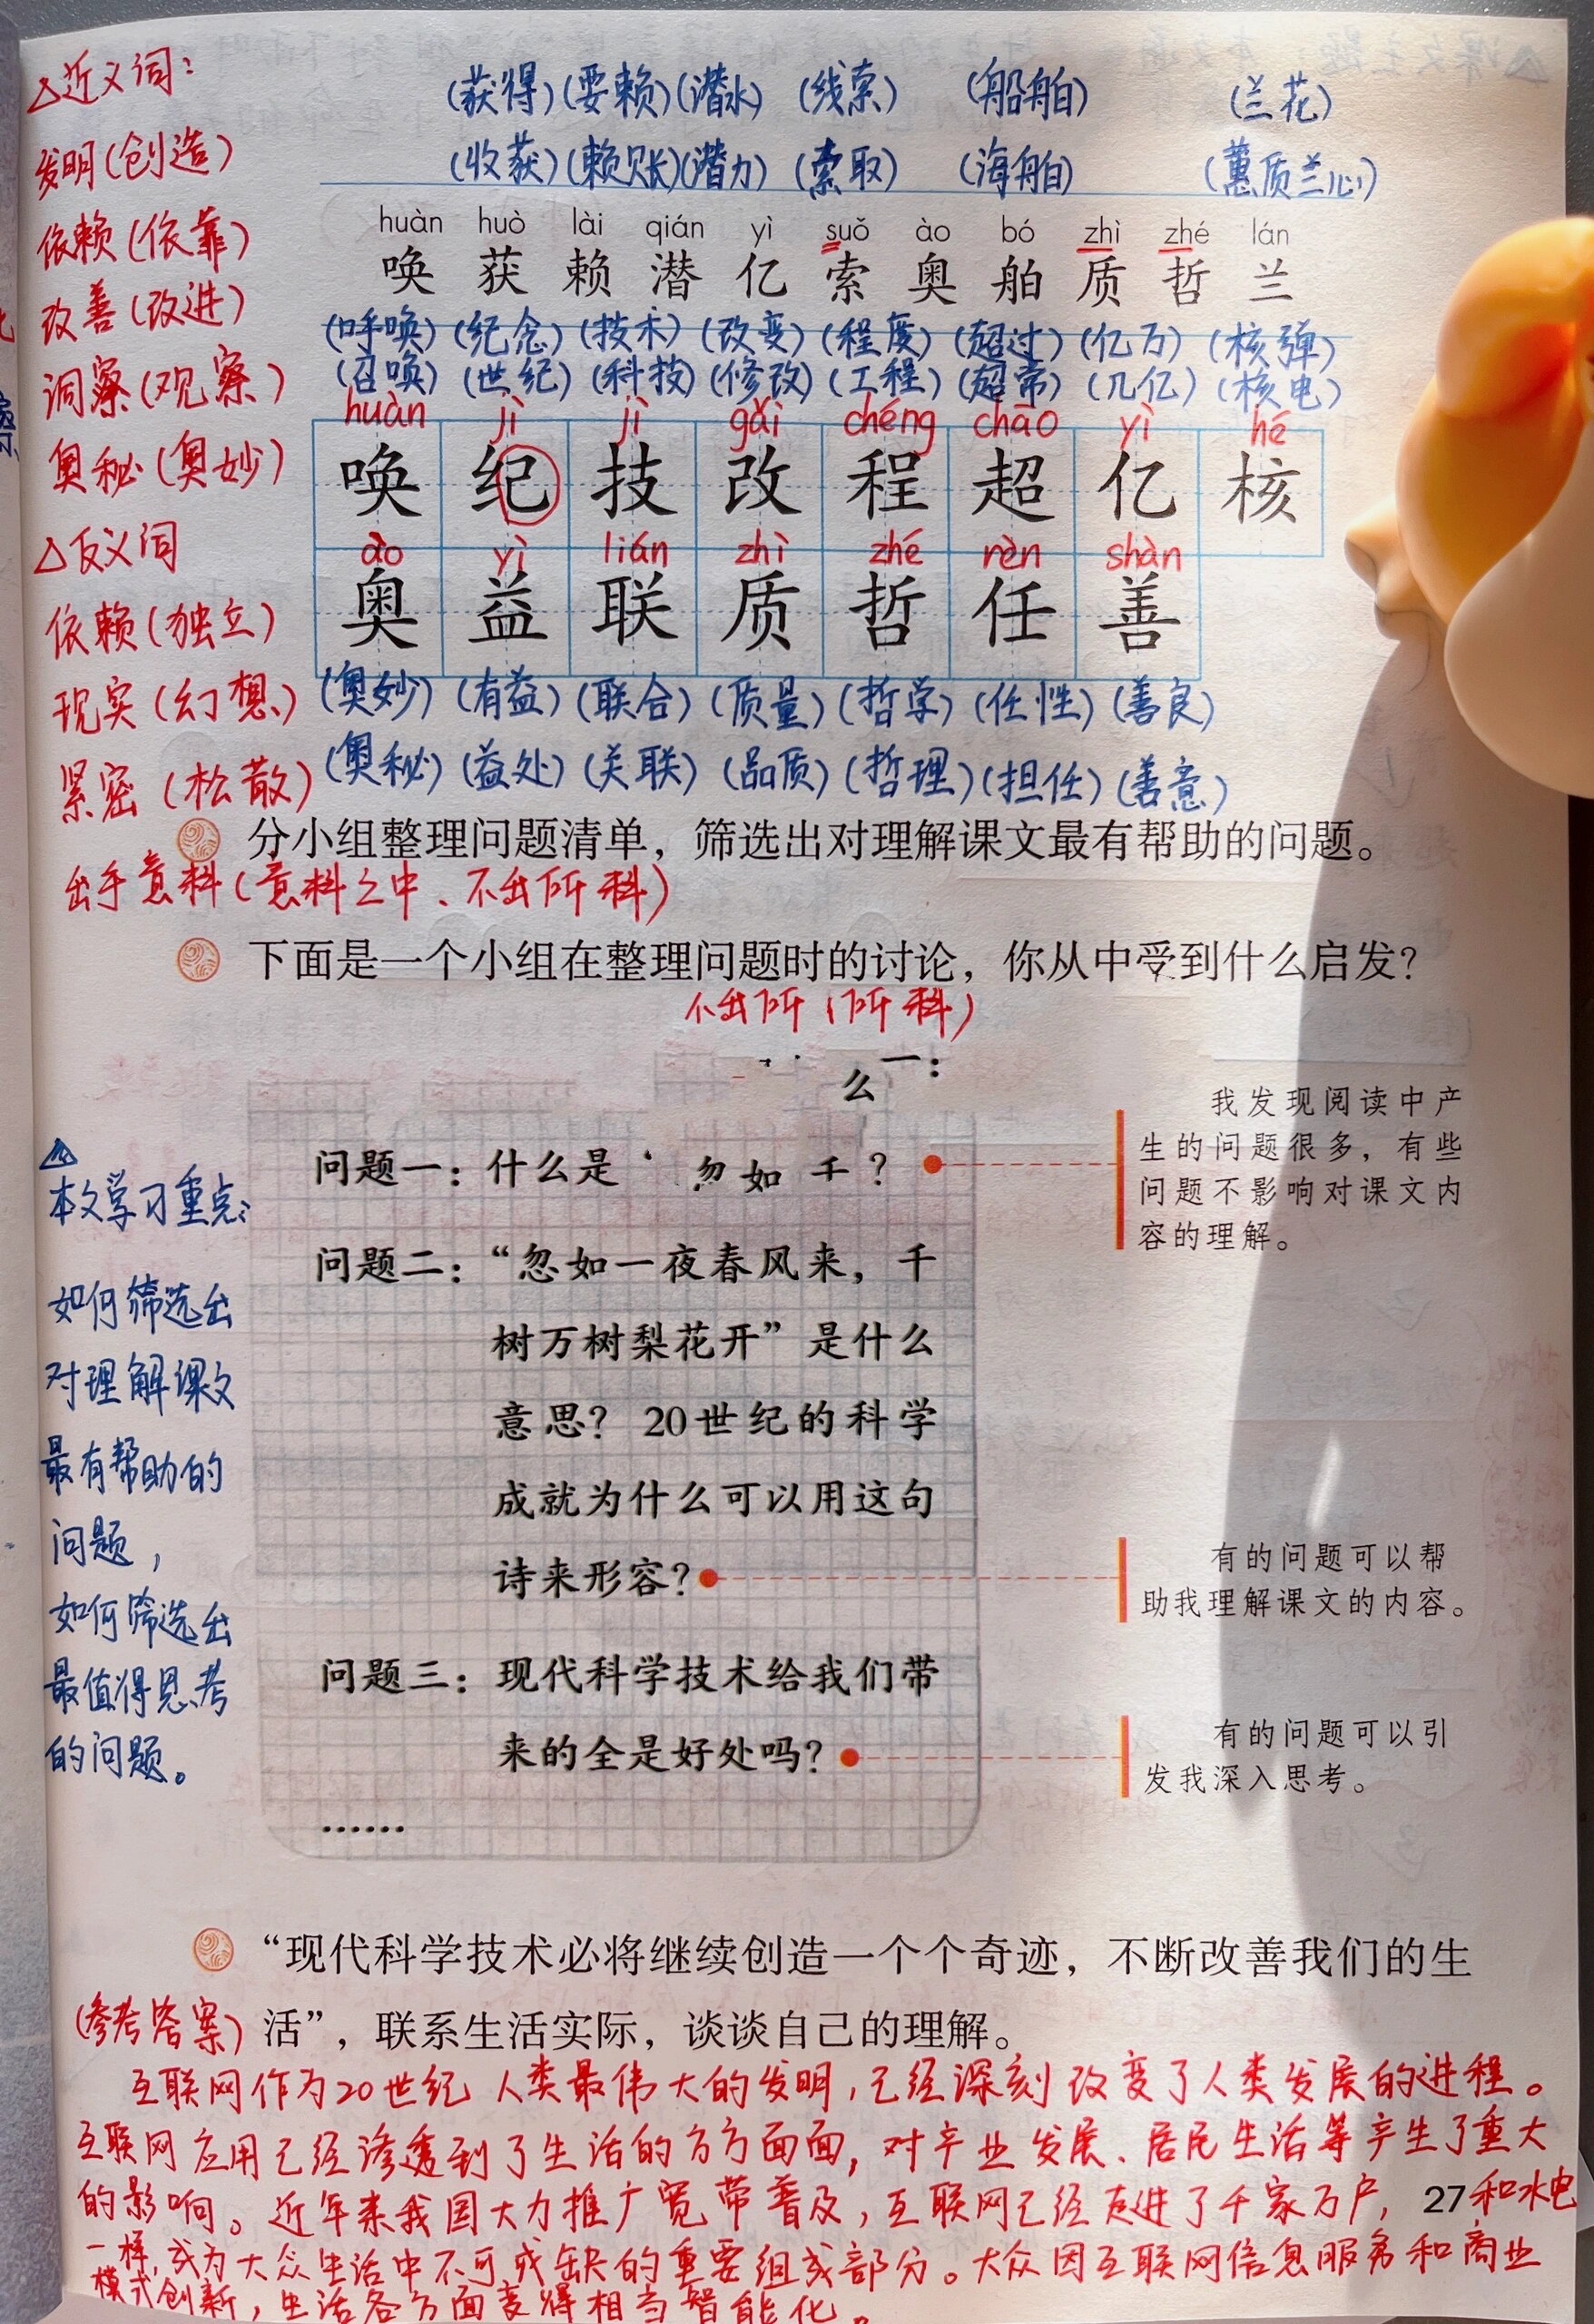 △近义词：
发明(创造)
依赖(依靠)
改善(改进)
洞察(观察)
奥秘(奥妙)
△反义词
依赖(独立)
现实(幻想)
紧密(松散)
出乎意料(意料之中、不出所料)
(获得)(耍赖)(潜水) (线索) (船舶) (兰花)
(收获)(赖账)(潜力) (索取) (海舶) (蕙质兰心)
huàn huò lài qián yì suǒ ào bó zhì zhé lán
唤 获 赖 潜 亿 索 奥 舶 质 哲 兰
(呼唤) (纪念) (技术) (改变) (程度) (超过) (亿万) (核弹)
(召唤) (世纪) (科技) (修改) (工程) (超常) (几亿) (核电)
huàn jì jì gǎi chéng chāo yì hé
唤 纪 技 改 程 超 亿 核
ào yì lián zhì zhé rèn shàn
奥 益 联 质 哲 任 善
(奥妙) (有益) (联合) (质量) (哲学) (任性) (善良)
(奥秘) (益处) (关联) (品质) (哲理) (担任) (善意)
分小组整理问题清单，筛选出对理解课文最有帮助的问题。
下面是一个小组在整理问题时的讨论，你从中受到什么启发？
不出所(所料)
么 一：
问题一：什么是 忽如 千？
问题二：“忽如一夜春风来，千
树万树梨花开”是什么
意思？20世纪的科学
成就为什么可以用这句
诗来形容？
问题三：现代科学技术给我们带
来的全是好处吗？
……
我发现阅读中产
生的问题很多，有些
问题不影响对课文内
容的理解。
有的问题可以帮
助我理解课文的内容。
有的问题可以引
发我深入思考。
△
本文学习重点：
如何筛选出
对理解课文
最有帮助的
问题，
如何筛选出
最值得思考
的问题。
“现代科学技术必将继续创造一个个奇迹，不断改善我们的生
活”，联系生活实际，谈谈自己的理解。
(参考答案)
互联网作为20世纪人类最伟大的发明，已经深刻改变了人类发展的进程。
互联网应用已经渗透到了生活的方方面面，对产业发展、居民生活等产生了重大
的影响。近年来我国大力推广宽带普及，互联网已经走进了千家万户，和水电
27
一样，成为大众生活中不可或缺的重要组成部分。大众因互联网信息服务和商业
模式创新，生活各方面变得相当智能化。